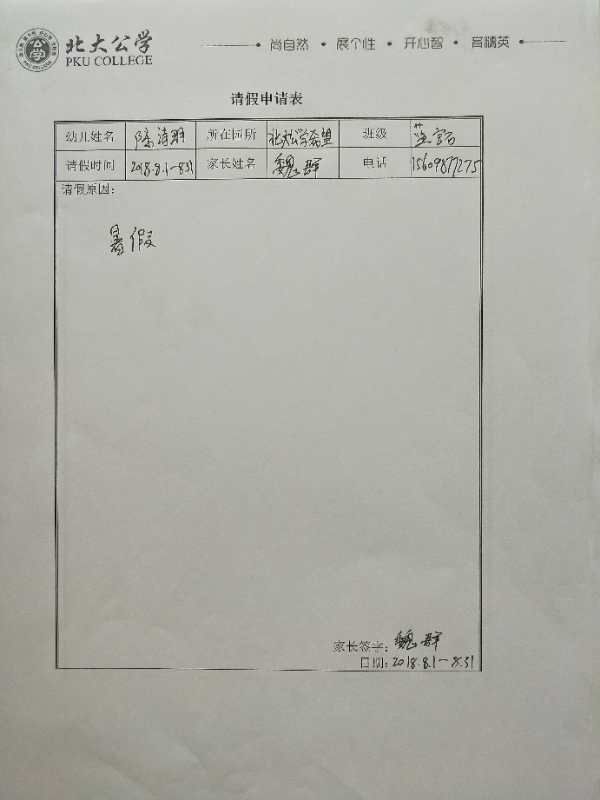 北大公学
PKU COLLEGE
尚自然 · 展个性 · 开心智 · 育精英
请假申请表
幼儿姓名 陈清玥 所在园所 北大公学希望 班级
请假时间 2018.8.1—8.31 家长姓名 魏群 电话 15609877275
请假原因：
暑假
家长签字：魏群
日期：2018.8.1—8.31